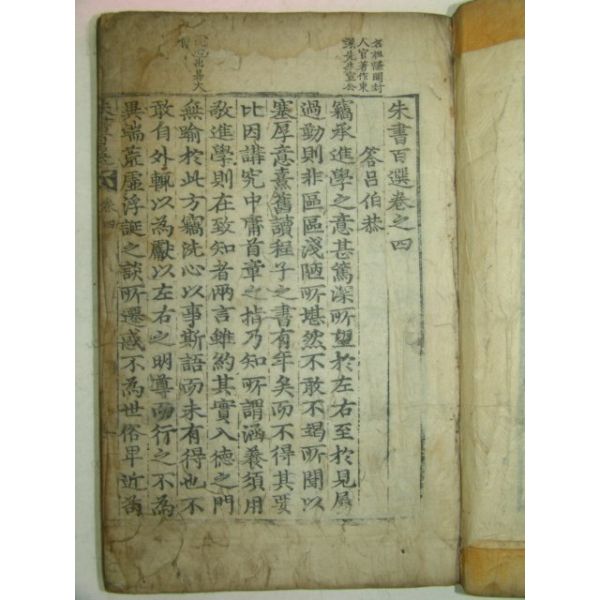 名祖謙開封
人官著作東
萊先生宣公
洗心出易大
朱書百選卷之四
答呂伯恭
竊承進學之意甚篤深所望於左右至於見屬
過勤則非區區淺陋所堪然不敢不竭所聞以
塞厚意熹舊讀程子之書有年矣而不得其要
比因講究中庸首章之指乃知所謂涵養須用
敬進學則在致知者兩言雖約其實入德之門
無踰於此方竊洗心以事斯語而未有得也不
敢自外輒以為獻以左右之明尊而行之不為
異端荒虛浮誕之談所遷惑不為世俗卑近苟
卷四